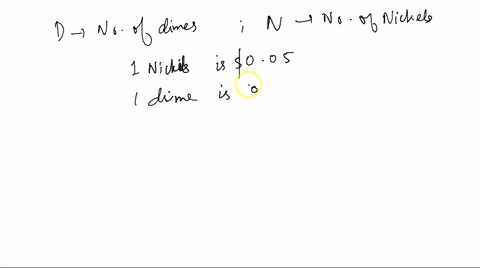 D → No. of dimes ; N → No. of Nickels
1 Nickels is $0.05
1 dime is